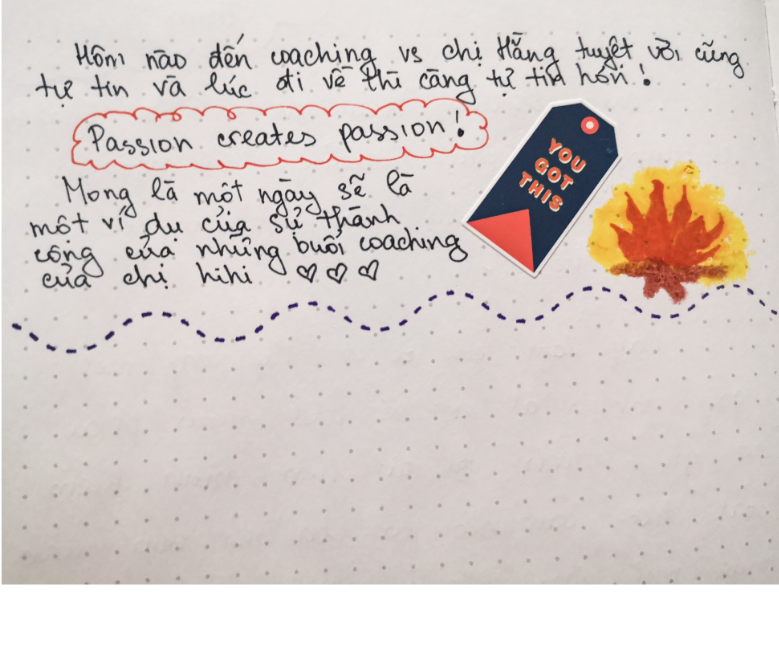 Hôm nào đến coaching vs chị Hằng tuyệt vời cũng
tự tin và lúc đi về thì càng tự tin hơn!
Passion creates passion!
YOU
GOT
THIS
Mong là một ngày sẽ là
một ví dụ của sự thành
công của những buổi coaching
của chị hihi ♡ ♡ ♡